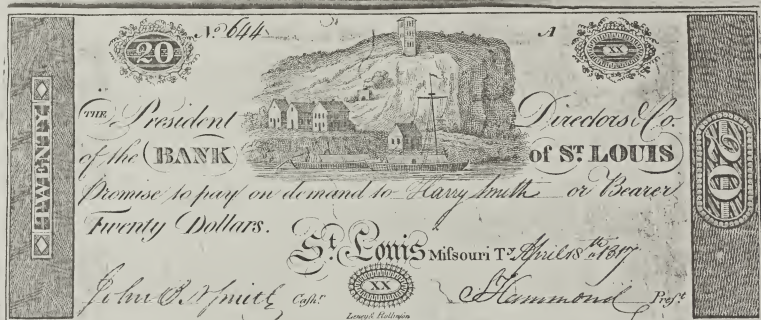 20 No. 644 A XX
TWENTY
THE President Directors & Co.
of the BANK of ST. LOUIS
20
Promise to pay on demand to Harry Smith or Bearer
Twenty Dollars.
St. Louis Mifsouri Ty. April 18th 1817
John B N Smith Cashr. XX S Hammond Prest.
Leney & Rollinson